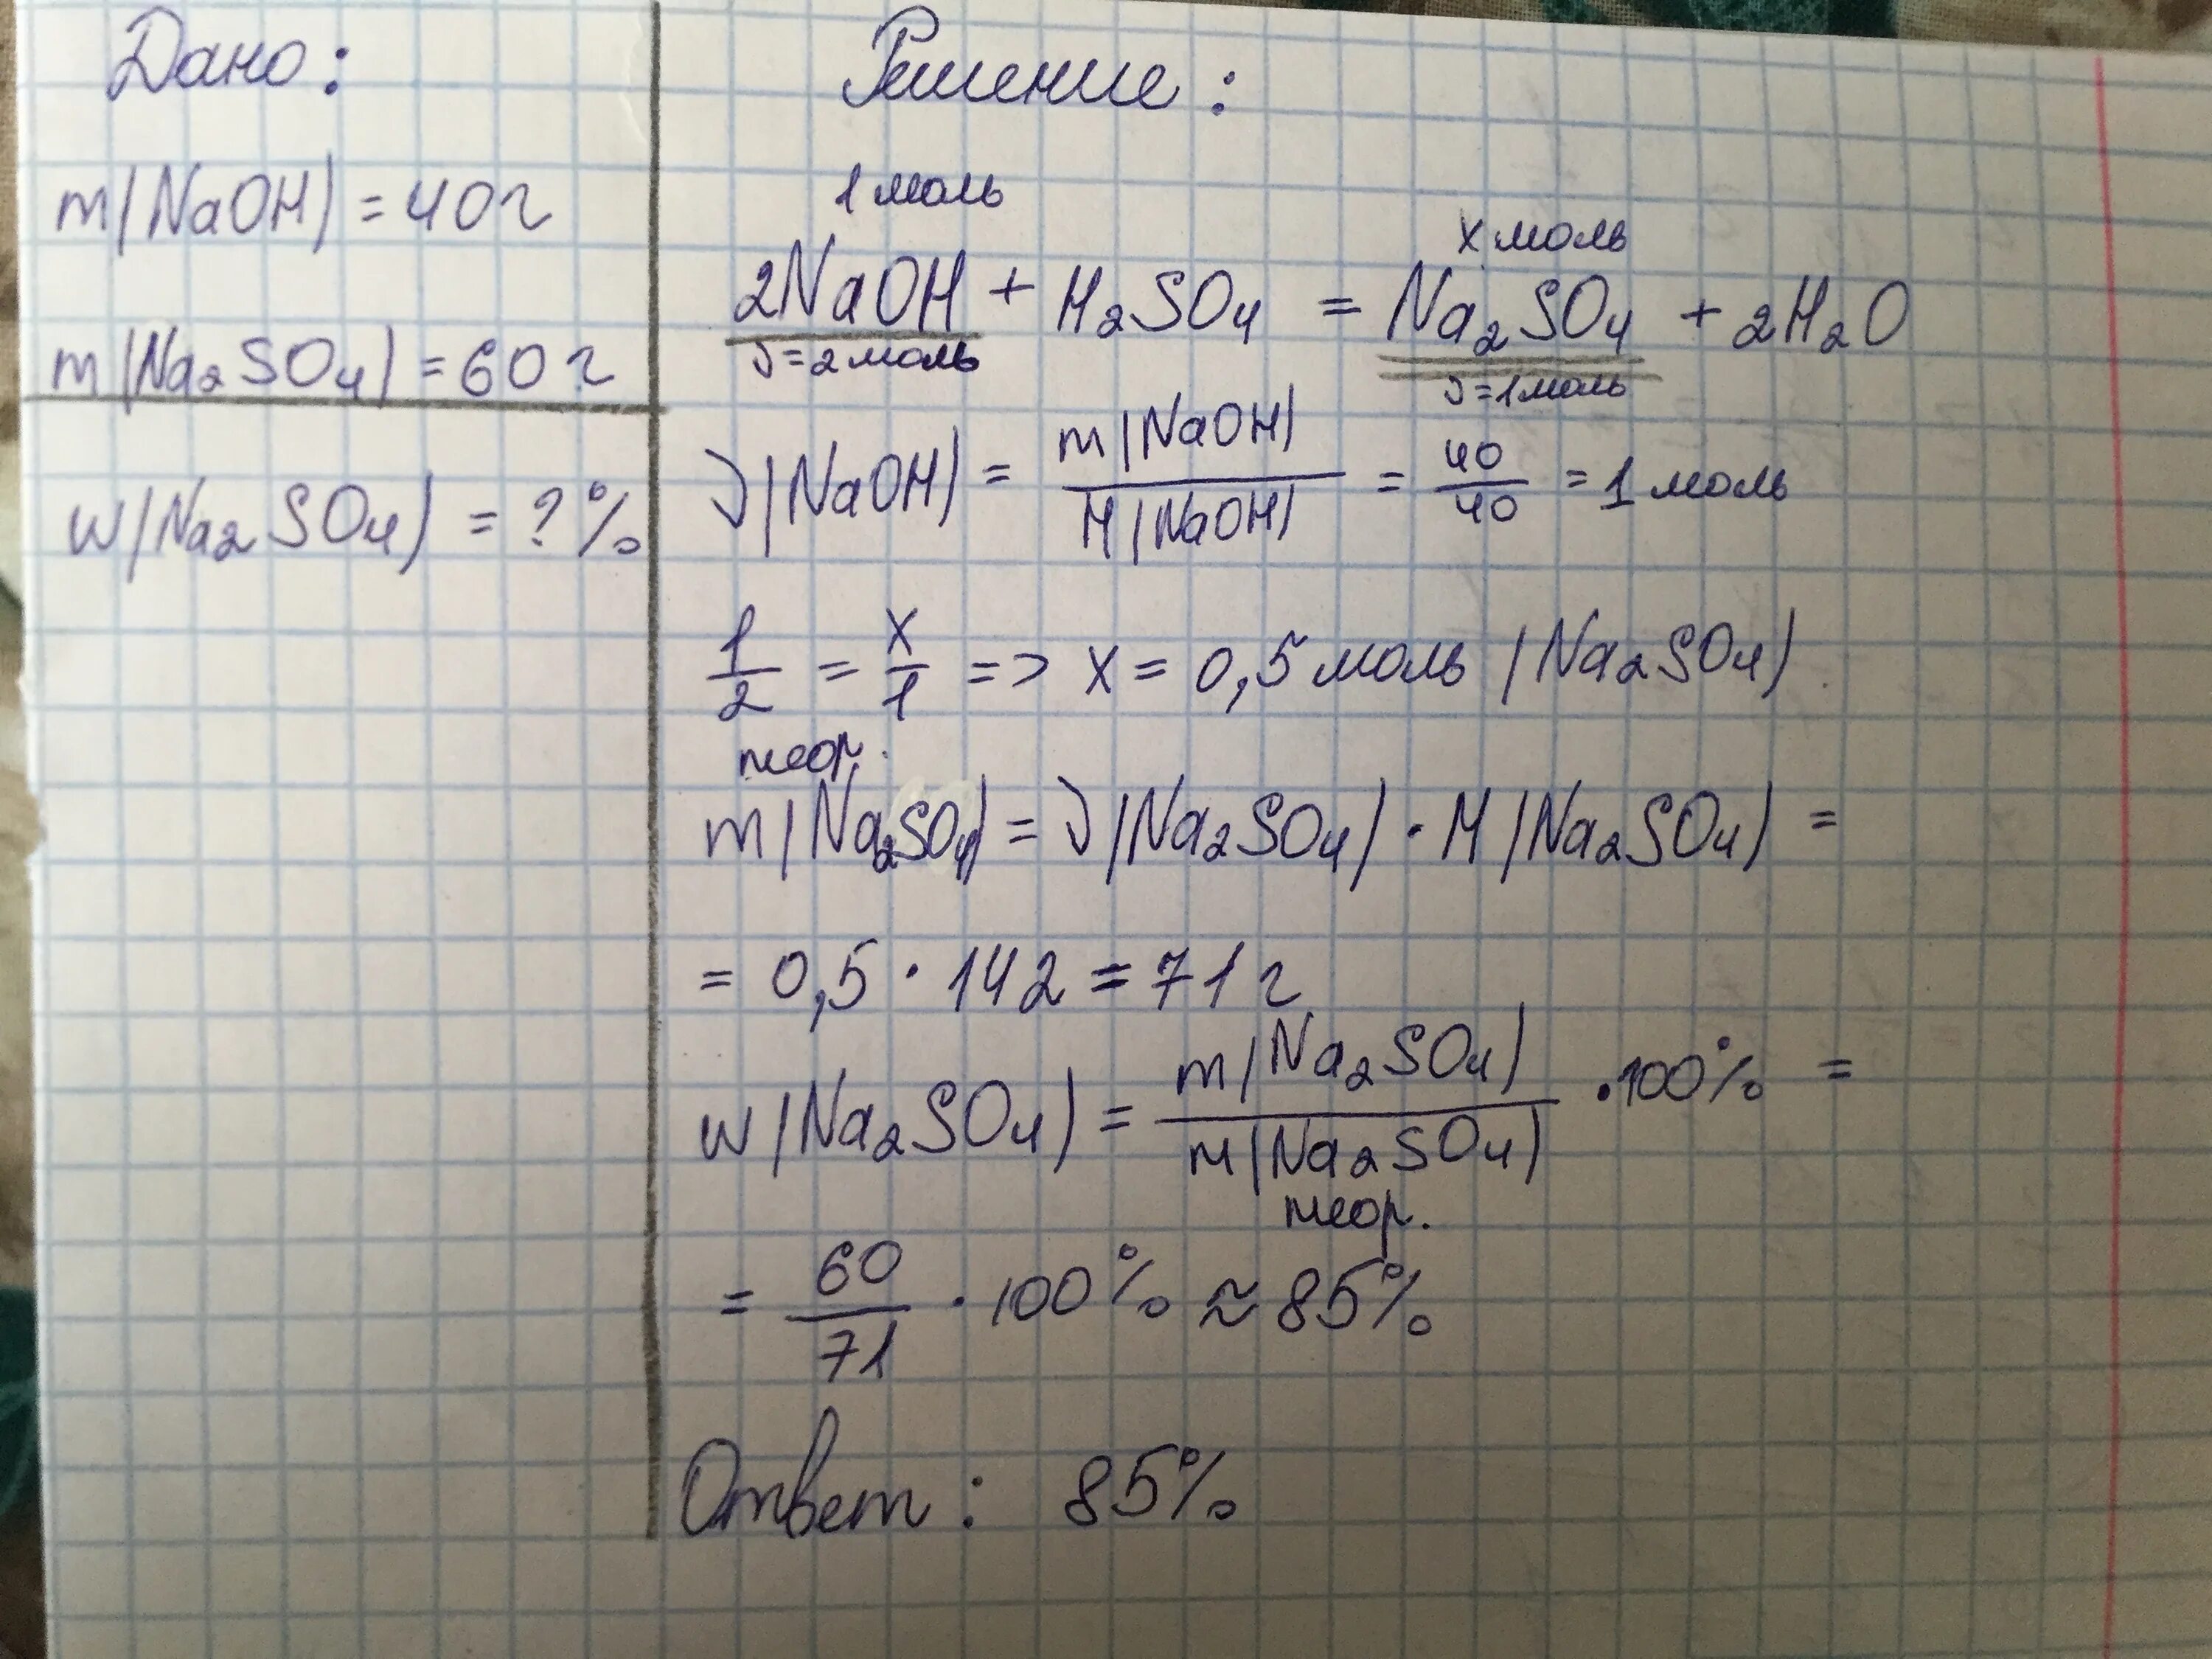 Дано:
m(NaOH) = 40г
m(Na₂SO₄) = 60г
w(Na₂SO₄) = ? %
Решение:
1 моль
x моль
2NaOH + H₂SO₄ = Na₂SO₄ + 2H₂O
ν=2моль
ν=1моль
ν(NaOH) = m(NaOH) / M(NaOH) = 40/40 = 1 моль
1/2 = x/1 => x = 0,5 моль (Na₂SO₄)
теор.
m(Na₂SO₄) = ν(Na₂SO₄) · M(Na₂SO₄) =
= 0,5 · 142 = 71 г
w(Na₂SO₄) = m(Na₂SO₄) / m(Na₂SO₄) · 100% =
теор.
= 60/71 · 100% ≈ 85%
Ответ: 85%